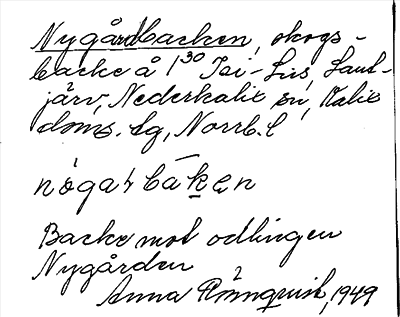 Nygårdbacken, skogs-
backe å 1³⁰ Tei-Lus, Lant-
järv, Nederkalix sn, Kalix
doms. lg, Norrb. l
nøgaɾbakən
Backe mot odlingen
Nygården
Anna Rönnquist, 1949